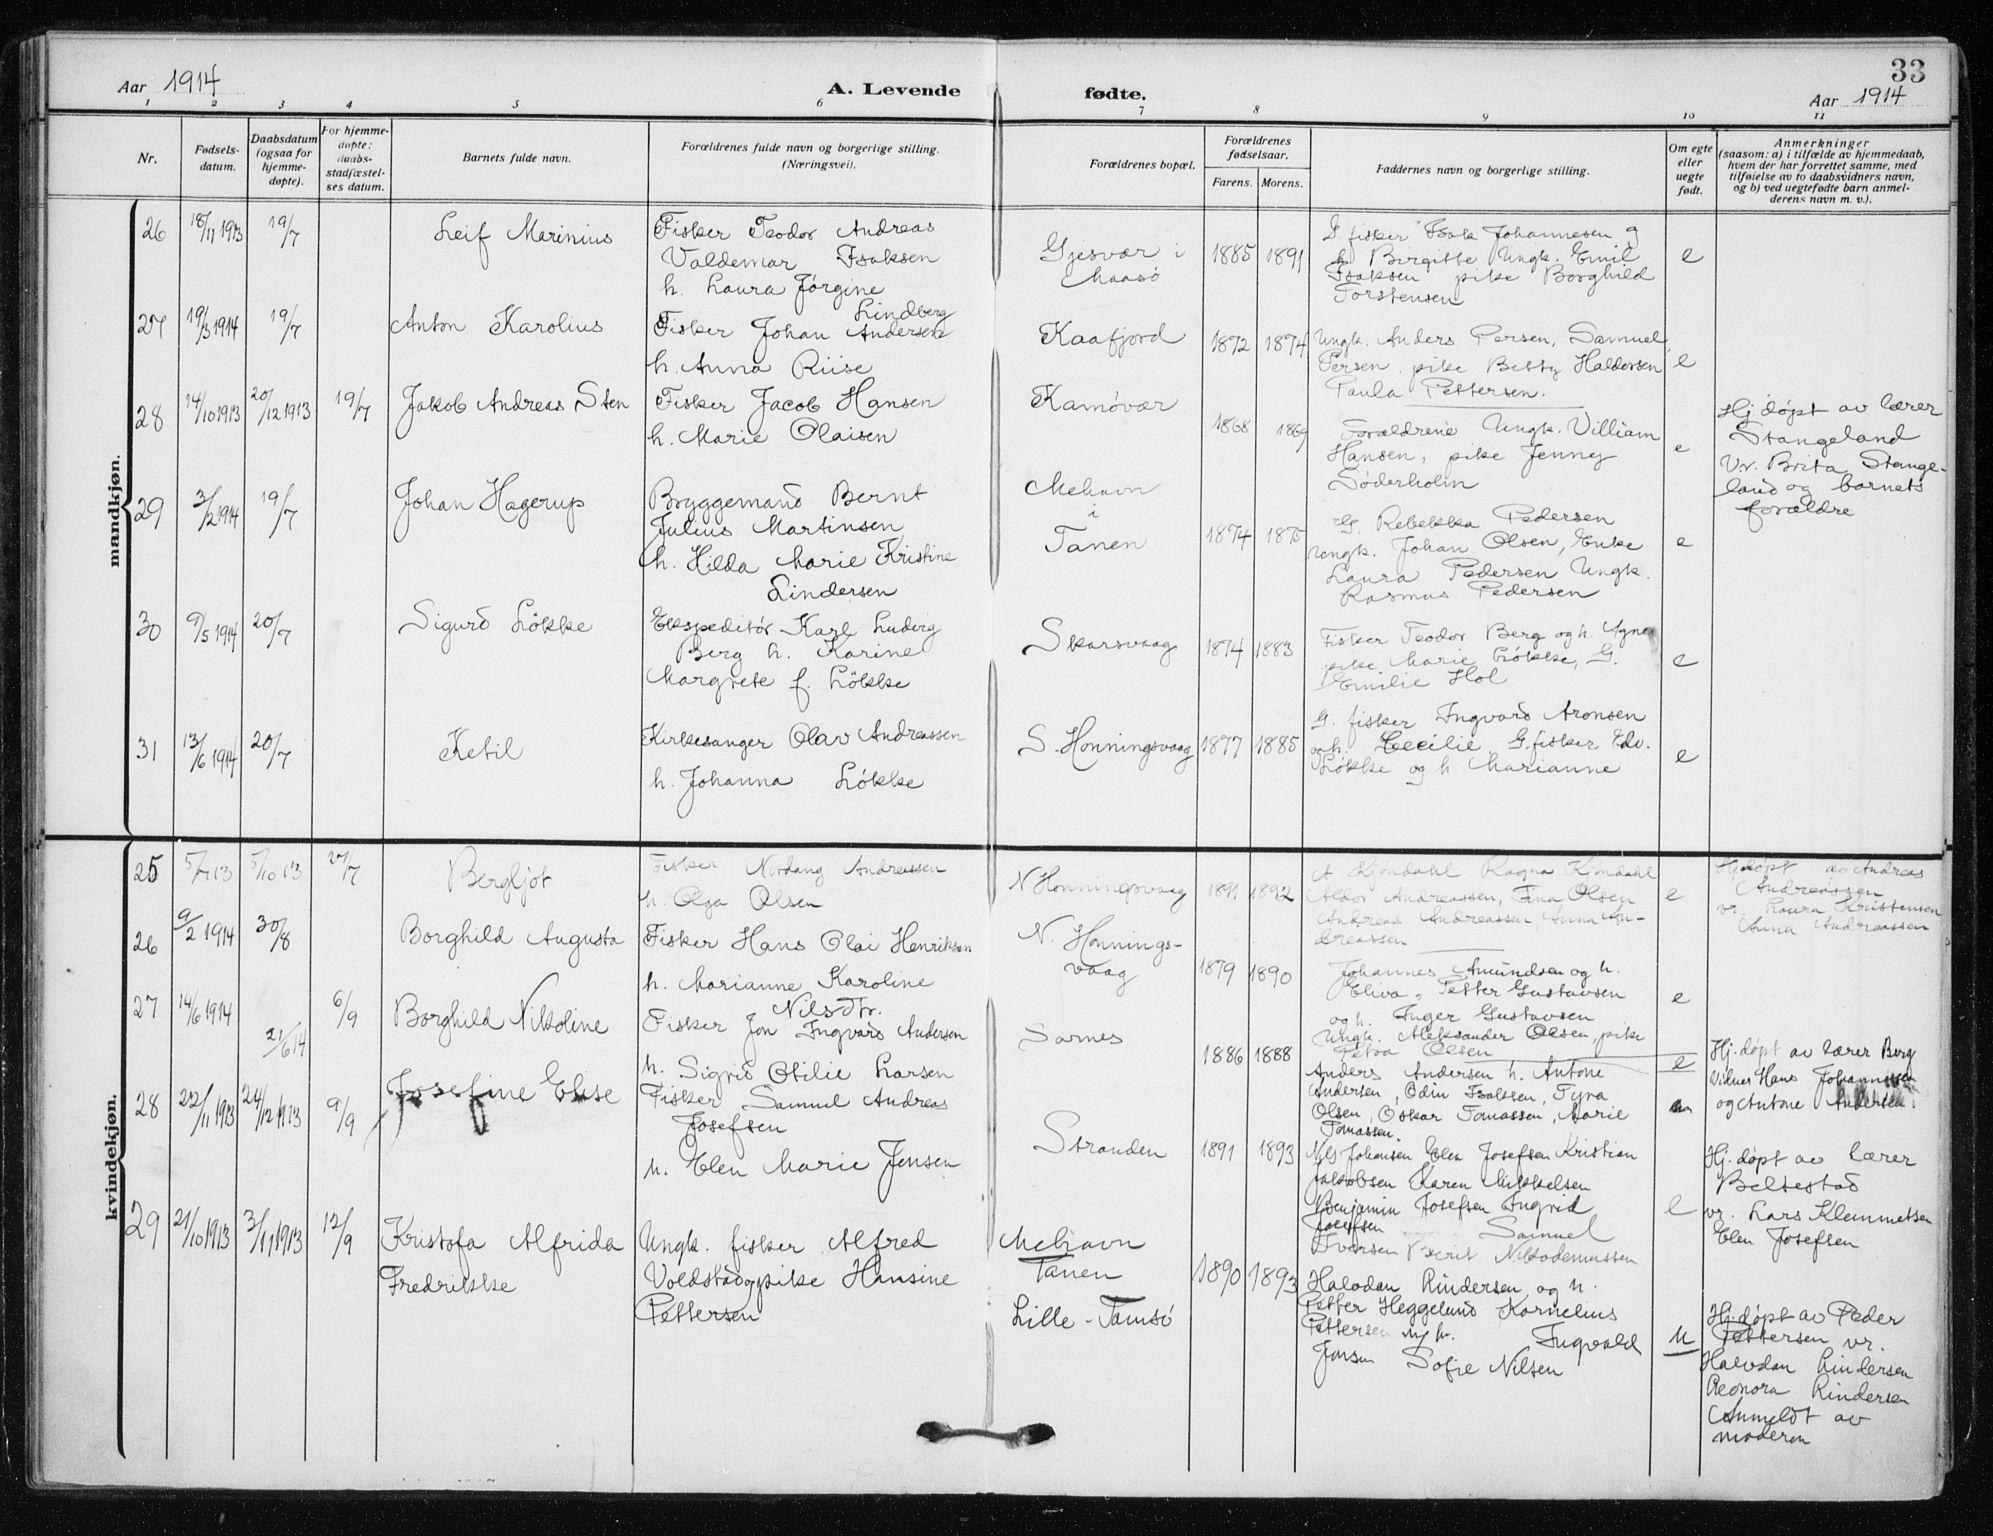 33
Aar 1914
A. Levende fødte.
Aar 1914
1 2 3 4 5 6 7 8 9 10 11
Nr.
Fødsels-
datum.
Daabsdatum
(ogsaa for
hjemme-
døpte).
For hjemme-
døpte:
daabs-
stadfæstel-
ses datum.
Barnets fulde navn.
Forældrenes fulde navn og borgerlige stilling.
(Næringsvei).
Forældrenes bopæl.
Forældrenes
fødselsaar.
Farens. Morens.
Faddernes navn og borgerlige stilling.
Om egte
eller
uegte
født.
Anmerkninger
(saasom: a) i tilfælde av hjemmedaab,
hvem der har forrettet samme, med
tilføielse av to daabsvidners navn,
og b) ved uegtefødte barn anmel-
derens navn m. v.).
mandkjøn.
26 18/11 1913 19/7
Leif Marinius
Fisker Teodor Andreas
Valdemar Isaksen
h. Laura Jørgine
Lindberg
Gjesvær i
Maasö
1885 1891
G. fisker Isak Johannesen og
h Birgitte Ungk. Emil
Isaksen pike Borghild
Torstensen
e
27 19/3 1914 19/7
Anton Karolius
Fisker Johan Andersen
h. Anna Riise
Kaafjord
1872 1874
Ungk. Anders Persen, Samuel
Persen, pike Betty Haldorsen
Paula Pettersen.
e
28 14/10 1913 20/12 1913 19/7
Jakob Andreas Sten
Fisker Jacob Hansen
h. Marie Olaisen
Kamøvær
1868 1869
Forældrene Ungk. Villiam
Hansen, pike Jenny
Söderholm
e
Hj. døpt av lærer
Stangeland
Vv. Brita Stange-
land og barnets
forældre
29 3/2 1914 19/7
Johan Hagerup
Bryggemand Bernt
Julius Martinsen
h. Hilda Marie Kristine
Lindersen
Mehavn
i
Tanen
1874 1875
G. Rebekka Pedersen
Ungk. Johan Olsen, Enke
Laura Pedersen Ungk.
Rasmus Pedersen
e
30 9/5 1914 20/7
Sigurd Lökke
Ekspeditör Karl Ludvig
Berg h. Karine
Margrete f. Lökke
Skarsvaag
1874 1883
Fisker Teodor Berg og h. Agne
pike Marie Lökke, G.
Emilie Hol
e
31 13/6 1914 20/7
Ketil
Kirkesanger Olav Andreassen
h. Johanna Løkke
S. Honningsvaag
1877 1885
G. fisker Ingvard Aronsen
og h. Cecilie G. fisker Edv.
Løkke og h Marianne
e
kvindekjøn.
25 5/7 13 5/10 13 27/7
Bergljot
Fisker Nordang Andreassen
h. Olga Olsen
N Honningsvaag
1891 1892
A Kjöndahl Ragna Kjöndahl
Aldor Andreassen, Fina Olsen
Andreas Andreassen Anna An-
dreassen
e
Hj. døpt av Andreas
Andreassen
v. Laura Kristensen
Anna Andreassen
26 9/2 1914 30/8
Borghild Augusta
Fisker Hans Olai Henriksen
h. Marianne Karoline
Nilsdtr.
N. Honnings-
vaag
1879 1890
Johannes Amundsen og h.
Eliva, Petter Gustavsen
og h. Inger Gustavsen
Ungk. Aleksander Olsen, pike
Petra Olsen
e
27 14/6 1914 21/6 14 6/9
Borghild Nikoline
Fisker Jon Ingvard Andersen
h. Sigrid Otilie Larsen
Sarnes
1886 1888
Anders Andersen h. Antone
Andersen, Odin Isaksen, Tyra
Olsen, Oskar Tomassen, Marie
Tomassen.
e
Hj. døpt av lærer Berg
Vidner Hans Johannessen
og Antone Andersen.
28 22/11 1913 24/12 1913 9/9
Josefine Elise
Fisker Samuel Andreas
Josefsen
h. Elen Marie Jensen
Stranden
1891 1893
Nils Johansen Elen Josefsen Kristian
Jakobsen Karen Mikkelsen
Benjamin Josefsen Ingrid
Josefsen Samuel
Iversen Berit Nikodemussen
e
Hj. døpt av lærer
Beltestad
vv. Lars Klemmetsen
Elen Josefsen
29 21/10 1913 3/11 1913 12/9
Kristofa Alfrida
Fredrikke
Ungk. fisker Alfred
Voldstad og pike Hansine
Pettersen
Mehavn
Tanen
Lille-Tamsö
1890 1893
Halvdan Rindersen og h.
Petter Heggelund Kornelius
Pettersen Ingvald
Jensen Sofie Nilsen
u
Hj. døpt av Peder
Pettersen vv.
Halvdan Rindersen
Leonora Rindersen
Anmeldt av
moderen